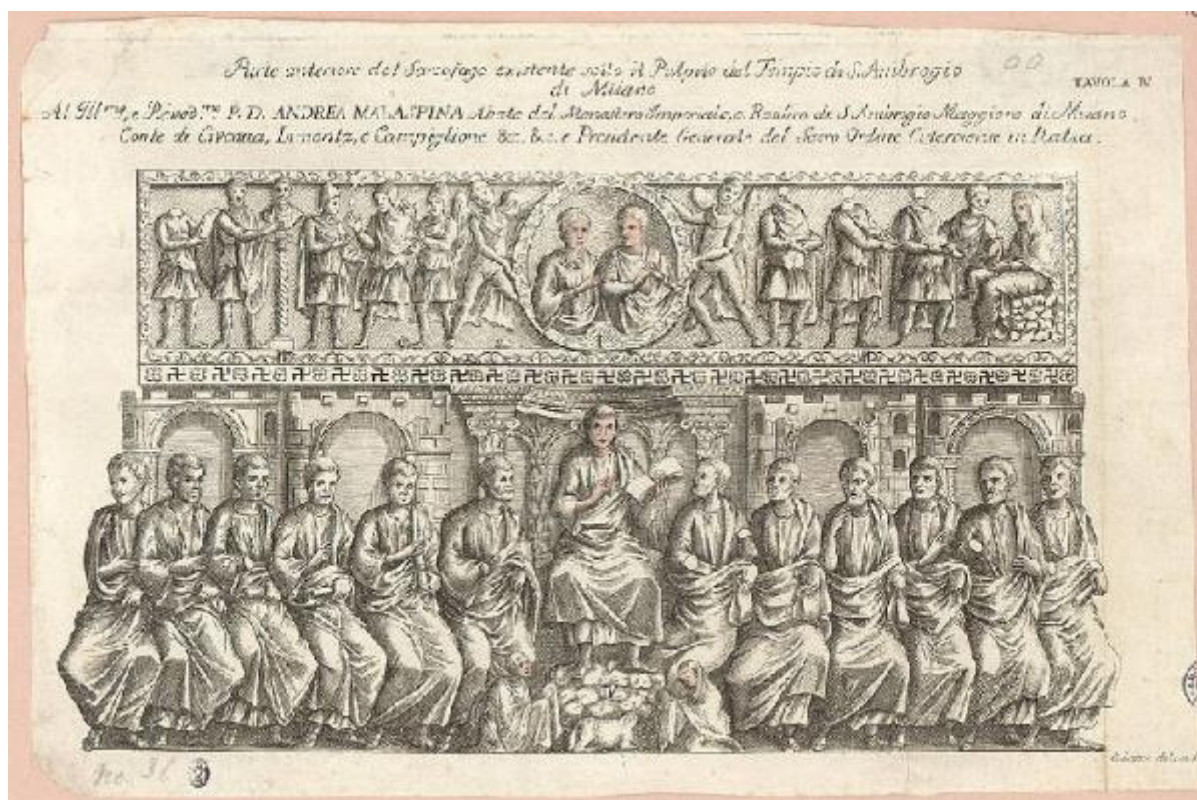 Parte anteriore del Sarcofago existente sotto il Pulpito del Tempio di S. Ambrogio
di Milano
TAVOLA IV
Al Ill.mo e Rev.mo P. D. ANDREA MALASPINA Abate del Monastero Imperiale, e Basilica di S. Ambrogio Maggiore di Milano
Conte di Civenna, Limonta, e Campiglione &c. &c. e Presidente Generale del Sacro Ordine Cisterciense in Italia.
no. 36